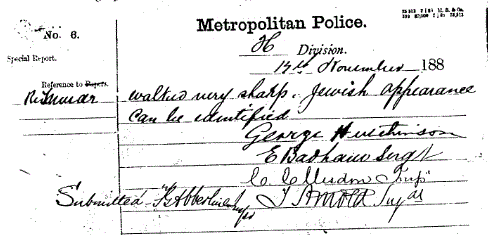 Metropolitan Police.
No. 6.
Special Report.
H Division.
12th November 188
Reference to Papers.
walked very sharp. Jewish appearance
Can be identified
George Hutchinson
E Badham Sergt
Submitted T Arnold Supd